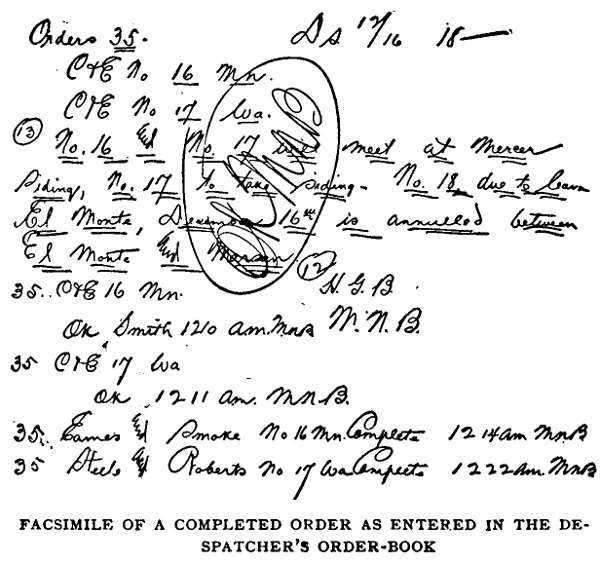 Orders 35. Ds 12/16 18—
C&E No 16 Mn.
C&E No 17 Wa.
13 No. 16 & No. 17 will meet at Mercer
Siding, No. 17 to take siding. No. 18 due to leave
El Monte, December 16th is annulled between
El Monte & Marian. 12
35.. C&E 16 Mn. H. G. B.
OK Smith 1210 am. MnB W. N. B.
35 C&E 17 Wa
OK 1211 am. MNB.
35. Eames & Smoke No 16 Mn. Complete 1214 am MnB
35 Steele & Roberts No 17 Wa Complete 1222 am. MnB
FACSIMILE OF A COMPLETED ORDER AS ENTERED IN THE DE-
SPATCHER'S ORDER-BOOK